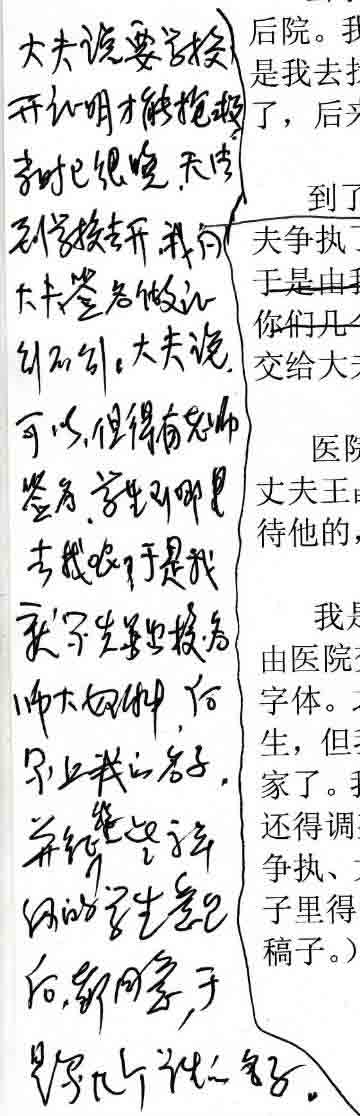 大夫说要学校
开证明才能抢救
当时已很晚,无法
到学校去开,我问
大夫,签名做证
行不行。大夫说,
可以,但得有老师
签名,学生到哪里
去找呢?于是我
就写先单位校名
师大女附中,后
写上我的名字。
并
的学生
后,都同意,于
是写几个学生的名子。
后院。我
是我去找
了,后来
到了
夫争执了
于是由我
你们几个
交给大夫
医院
丈夫王
待他的,
我是
由医院
字体。
生,但
家了。我
还得调
争执、
子里得
稿子。)